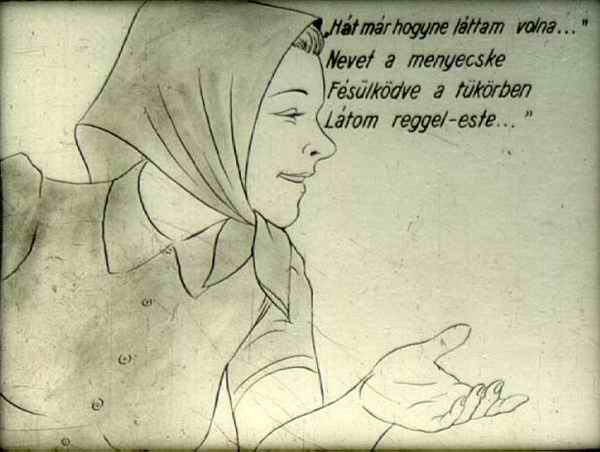 „Hát már hogyne láttam volna..."
Nevet a menyecske
Fésülködve a tükörben
Látom reggel-este..."